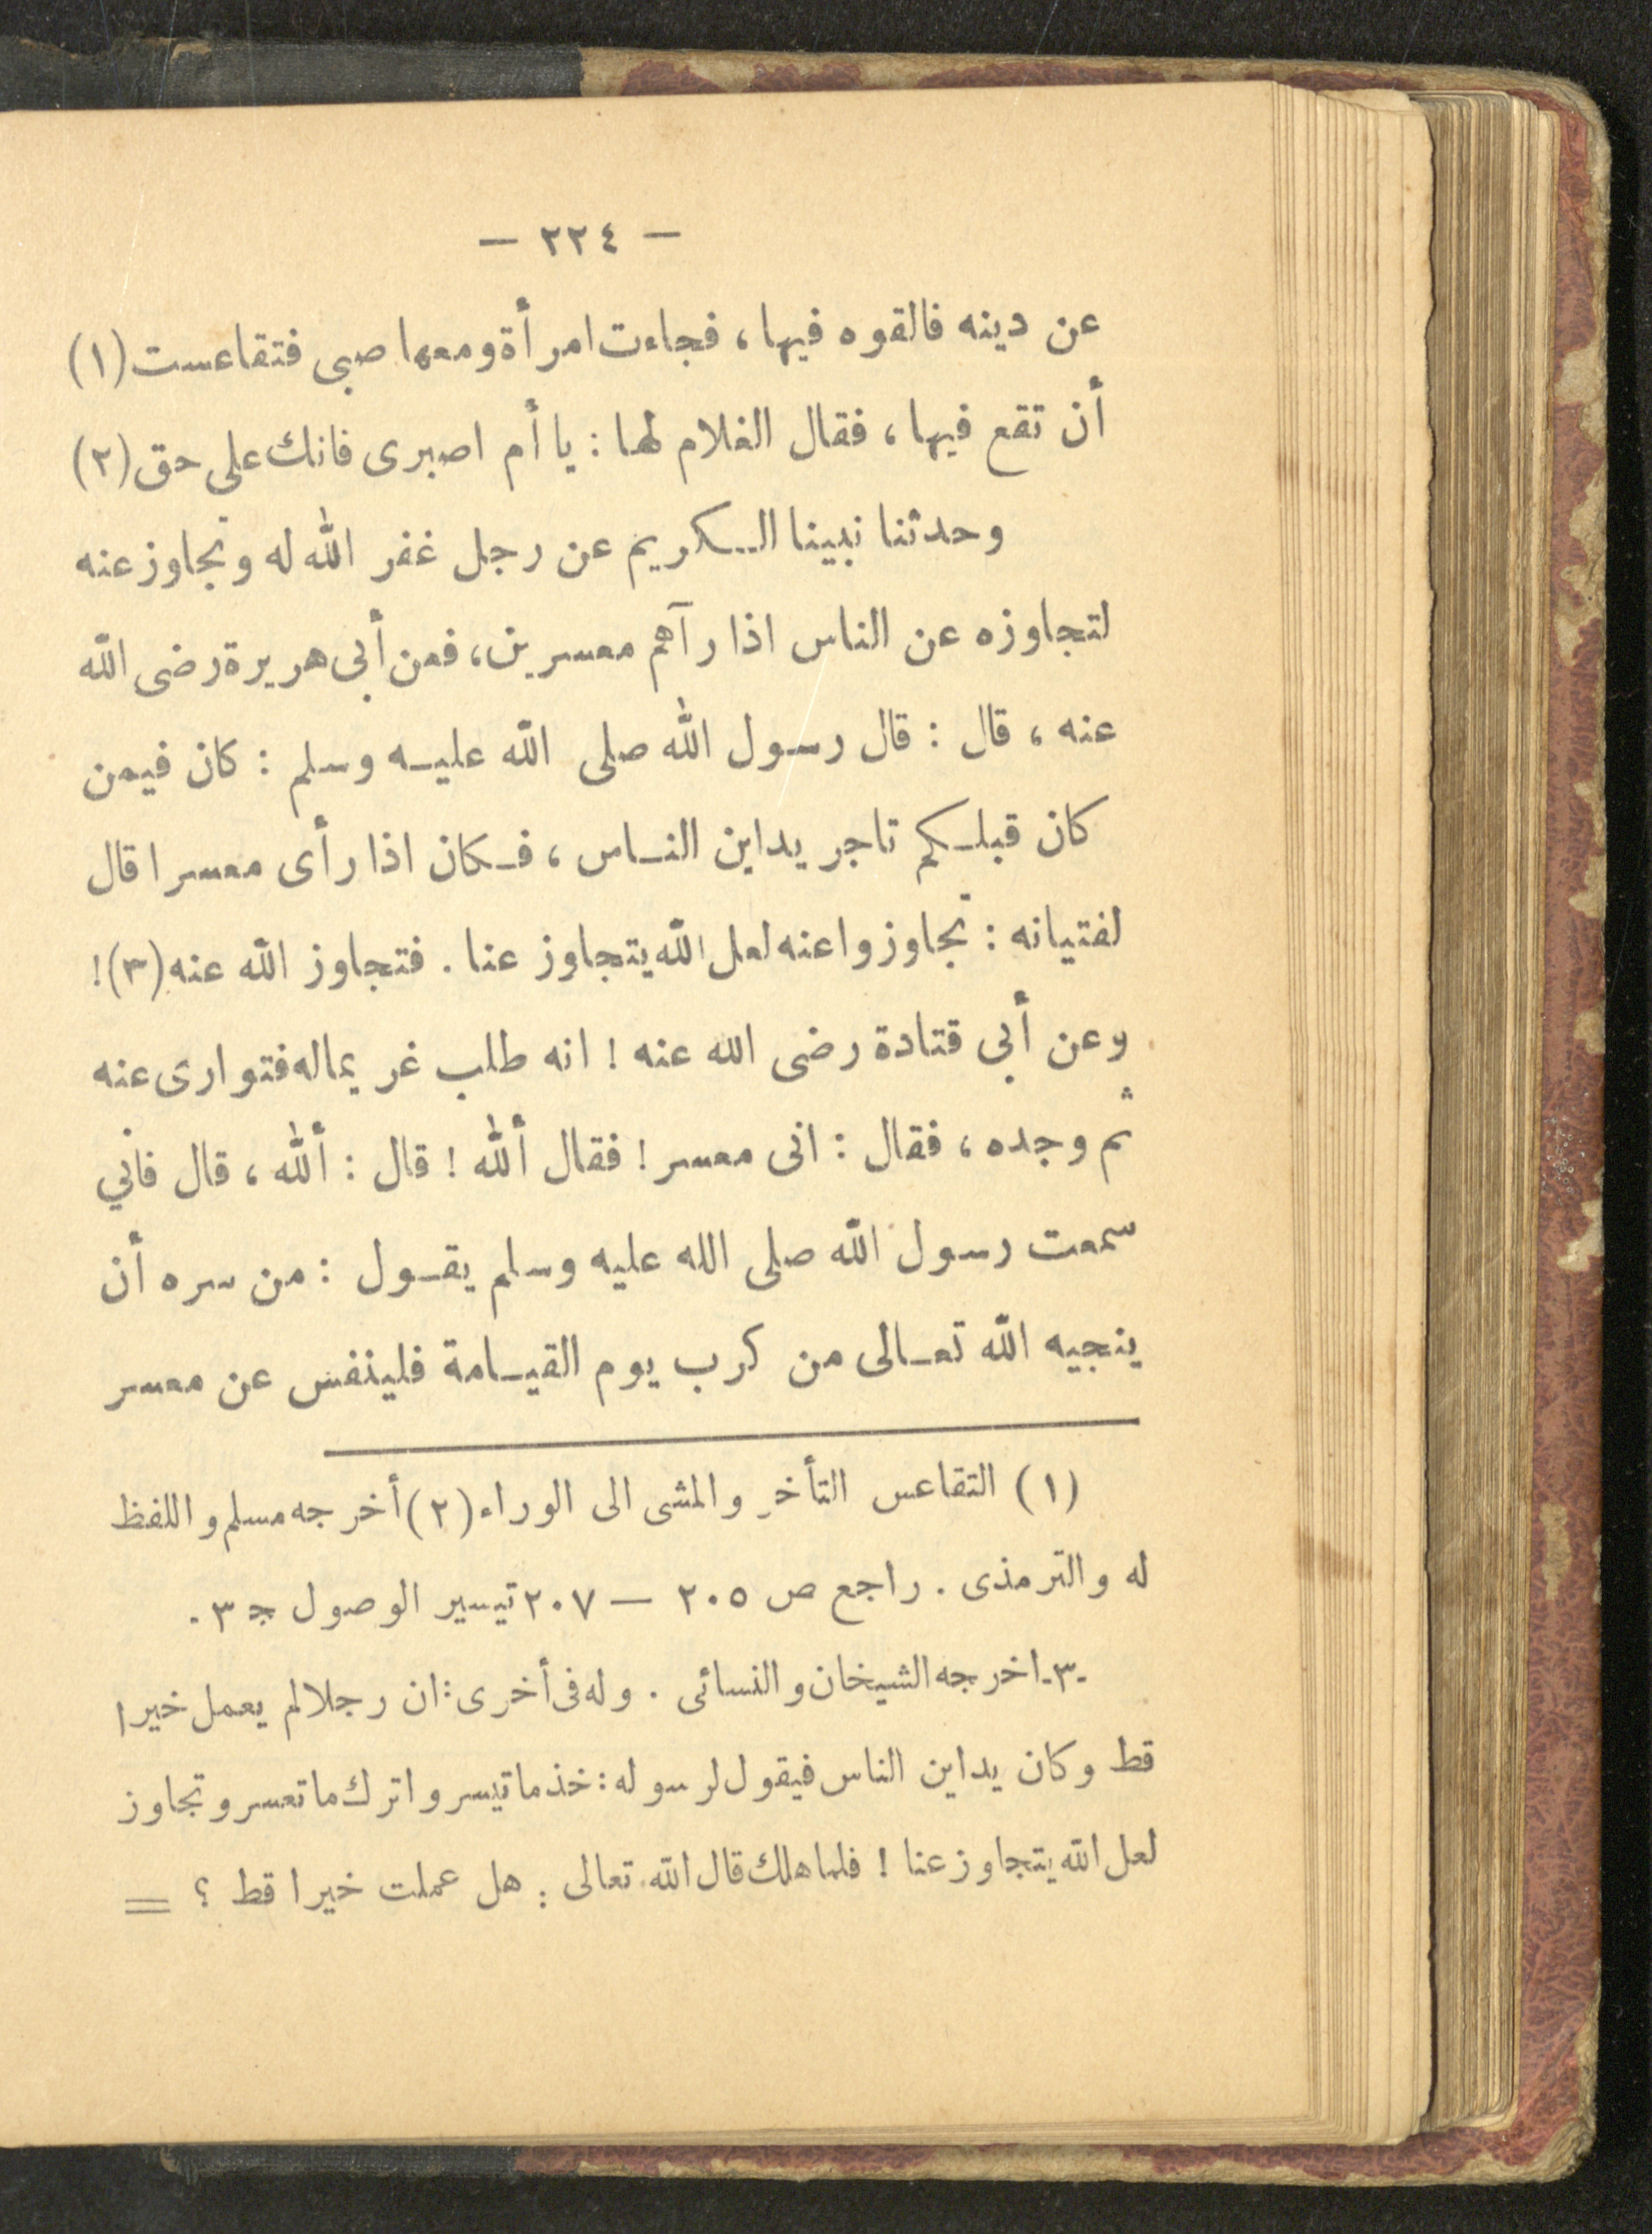 — ٢٢٤ —
عن دينه فالقوه فيها ، فجاءت امرأة ومعها صبى فتقاعست (١)
أن تقع فيها ، فقال الغلام لها : يا أم اصبرى فانك على حق (٢)
وحدثنا نبينا الكريم عن رجل غفر الله له وتجاوز عنه
لتجاوزه عن الناس اذا رآهم معسرين ، فعن أبى هريرة رضى الله
عنه ، قال : قال رسول الله صلى الله عليه وسلم : كان فيمن
كان قبلكم تاجر يداين الناس ، فكان اذا رأى معسرا قال
لفتيانه : تجاوزوا عنه لعل الله يتجاوز عنا . فتجاوز الله عنه (٣) !
وعن أبي قتادة رضى الله عنه ! انه طلب غريما له فتوارى عنه
ثم وجده ، فقال : انى معسر ! فقال ألله ! قال : ألله ، قال فاني
سمعت رسول الله صلى الله عليه وسلم يقول : من سره أن
ينجيه الله تعالى من كرب يوم القيامة فلينفس عن معسر
(١) التقاعس التأخر والمشى الى الوراء (٢) أخرجه مسلم واللفظ
له والترمذى . راجع ص ٢٠٥ — ٢٠٧ تيسير الوصول ج ٣ .
-٣- اخرجه الشيخان والنسائى . وله فى أخرى : ان رجلا لم يعمل خيرا
قط وكان يداين الناس فيقول لرسوله : خذ ما تيسر واترك ما تعسر وتجاوز
لعل الله يتجاوز عنا ! فلما هلك قال الله تعالى : هل عملت خيرا قط ؟ =